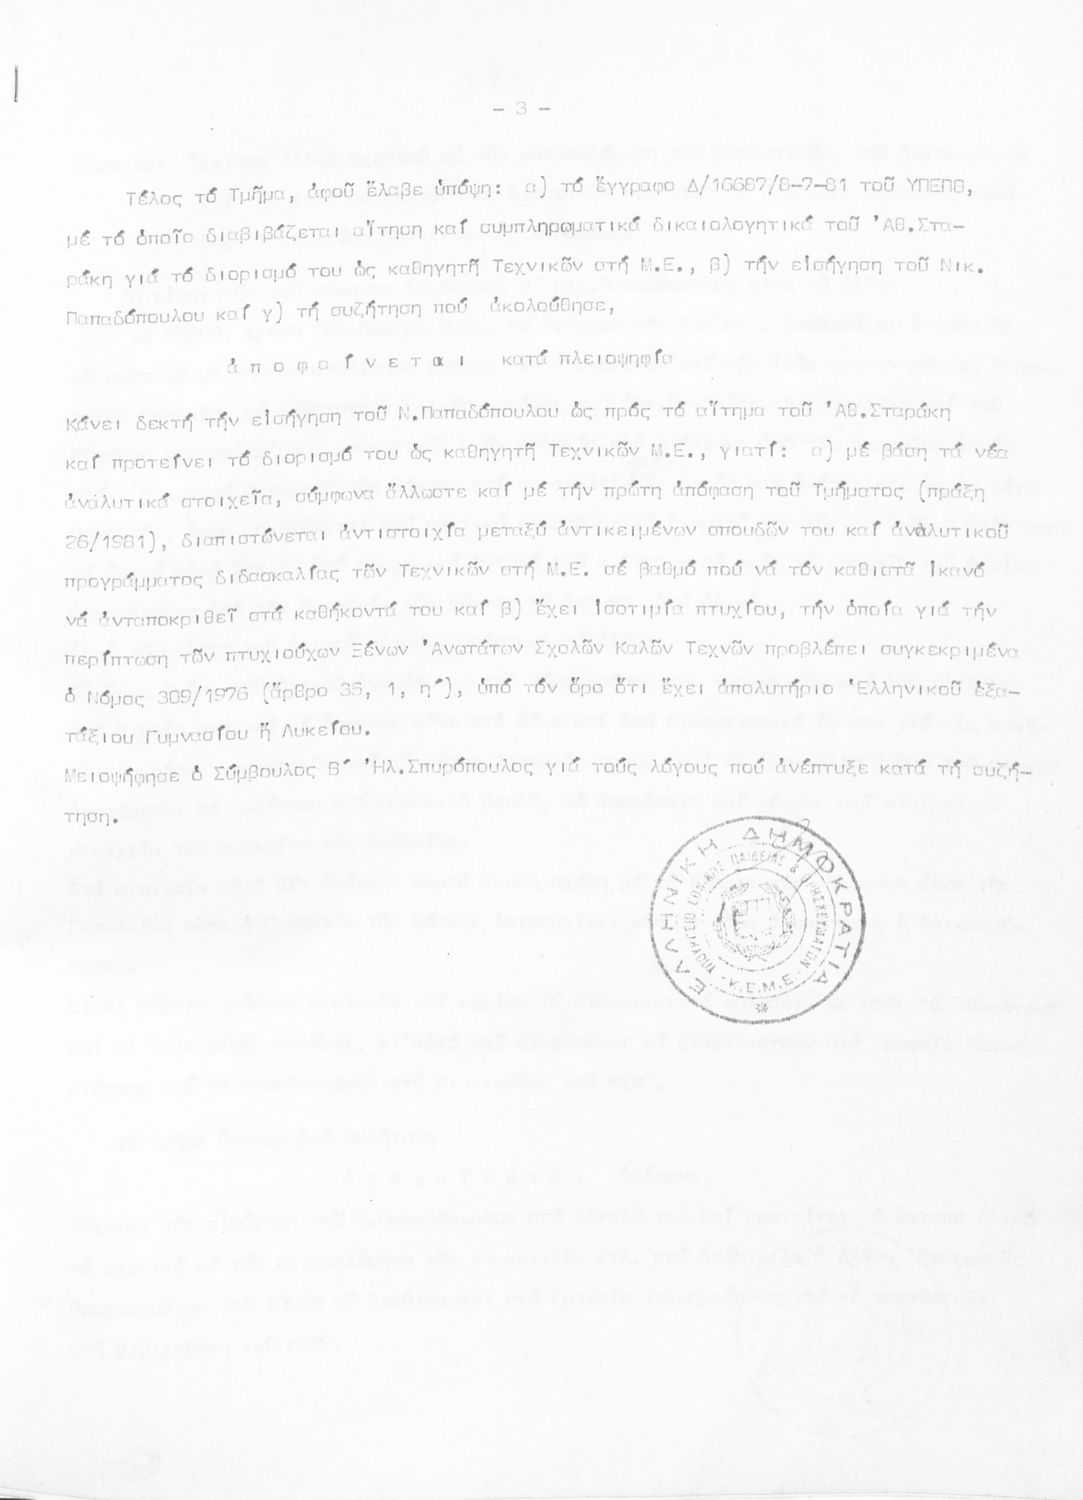 - 3 -
Τέλος τό Τμῆμα, ἀφοῦ ἔλαβε ὑπόψη: α) τό ἔγγραφο Δ/16687/8-7-81 τοῦ ΥΠΕΠΘ,
μέ τό ὁποῖο διαβιβάζεται αἴτηση καί συμπληρωματικά δικαιολογητικά τοῦ 'Αθ.Στα-
ράκη γιά τό διορισμό του ὡς καθηγητῆ Τεχνικῶν στή Μ.Ε., β) τήν εἰσήγηση τοῦ Νικ.
Παπαδόπουλου καί γ) τή συζήτηση πού ἀκολούθησε,
ἀ π ο φ α ί ν ε τ αι κατά πλειοψηφία
Κάνει δεκτή τήν εἰσήγηση τοῦ Ν.Παπαδόπουλου ὡς πρός τό αἴτημα τοῦ 'Αθ.Σταράκη
καί προτείνει τό διορισμό του ὡς καθηγητῆ Τεχνικῶν Μ.Ε., γιατί: α) μέ βάση τά νέα
ἀναλυτικά στοιχεῖα, σύμφωνα ἄλλωστε καί μέ τήν πρώτη ἀπόφαση τοῦ Τμήματος (πράξη
26/1981), διαπιστώνεται ἀντιστοιχία μεταξύ ἀντικειμένων σπουδῶν του καί ἀναλυτικοῦ
προγράμματος διδασκαλίας τῶν Τεχνικῶν στή Μ.Ε. σέ βαθμό πού νά τόν καθιστᾶ ἱκανό
νά ἀνταποκριθεῖ στά καθήκοντά του καί β) ἔχει ἰσοτιμία πτυχίου, τήν ὁποία γιά τήν
περίπτωση τῶν πτυχιούχων Ξένων 'Ανωτάτων Σχολῶν Καλῶν Τεχνῶν προβλέπει συγκεκριμένα
ὁ Νόμος 309/1976 (ἄρθρο 35, 1, η'), ὑπό τόν ὅρο ὅτι ἔχει ἀπολυτήριο 'Ελληνικοῦ ἑξα-
τάξιου Γυμνασίου ἤ Λυκείου.
Μειοψήφησε ὁ Σύμβουλος Β' 'Ηλ.Σπυρόπουλος γιά τούς λόγους πού ἀνέπτυξε κατά τή συζή-
τηση.
ΕΛΛΗΝΙΚΗ ΔΗΜΟΚΡΑΤΙΑ
ΥΠΟΥΡΓΕΙΟ ΕΘΝΙΚΗΣ ΠΑΙΔΕΙΑΣ & ΘΡΗΣΚΕΥΜΑΤΩΝ
Κ.Ε.Μ.Ε.